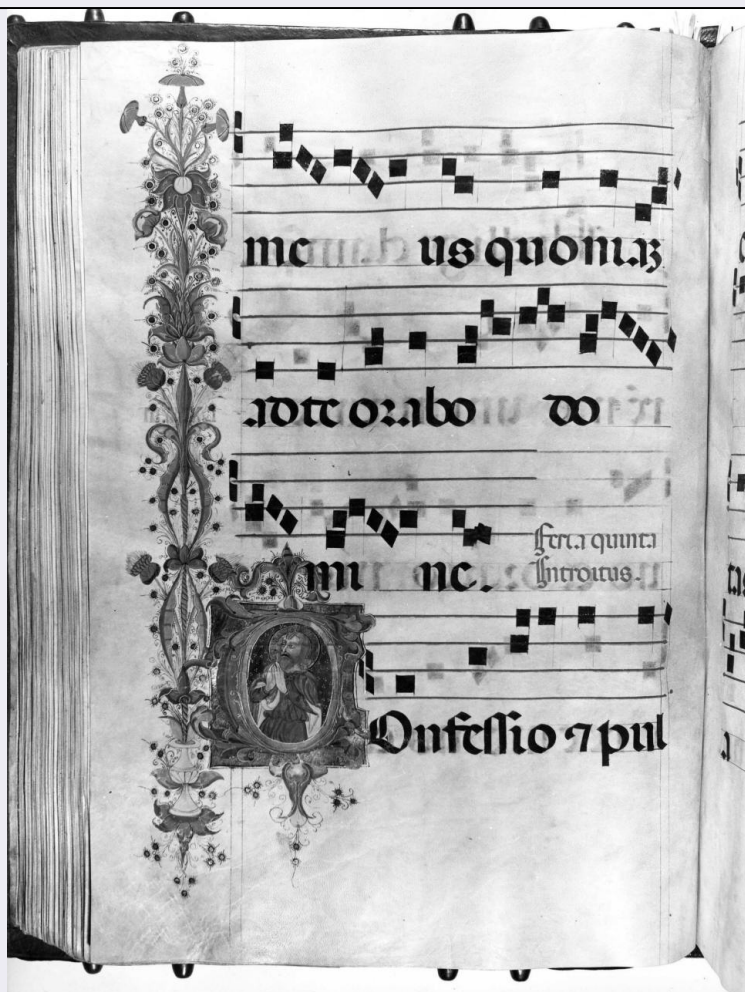 me us quoniaʒ
ad te orabo do
mi ne.
Feria quinta
Introitus.
COnfessio ⁊ pul